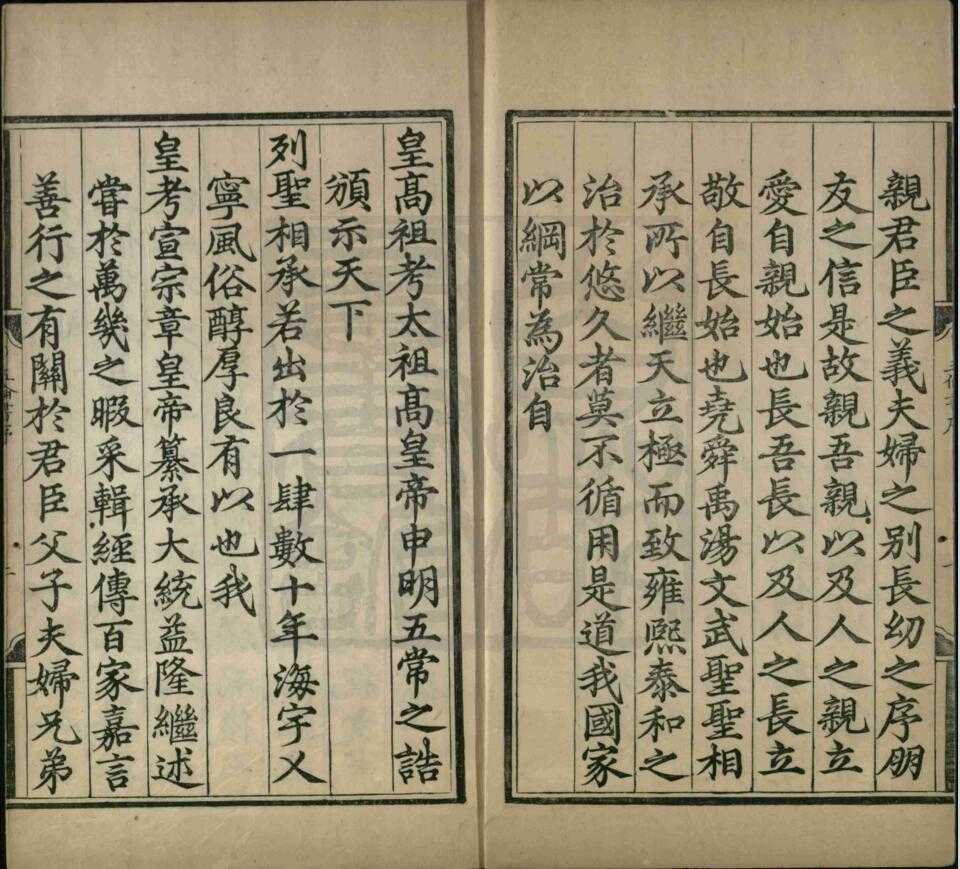 親君臣之義夫婦之别長幼之序朋
友之信是故親吾親以及人之親立
愛自親始也長吾長以及人之長立
敬自長始也堯舜禹湯文武聖聖相
承所以繼天立極而致雍熙泰和之
治於悠久者莫不循用是道我國家
以綱常為治自
皇高祖考太祖高皇帝申明五常之誥
頒示天下
列聖相承若出於一肆數十年海宇乂
寧風俗醇厚良有以也我
皇考宣宗章皇帝纂承大統益隆繼述
甞於萬幾之暇采輯經傳百家嘉言
善行之有關於君臣父子夫婦兄弟